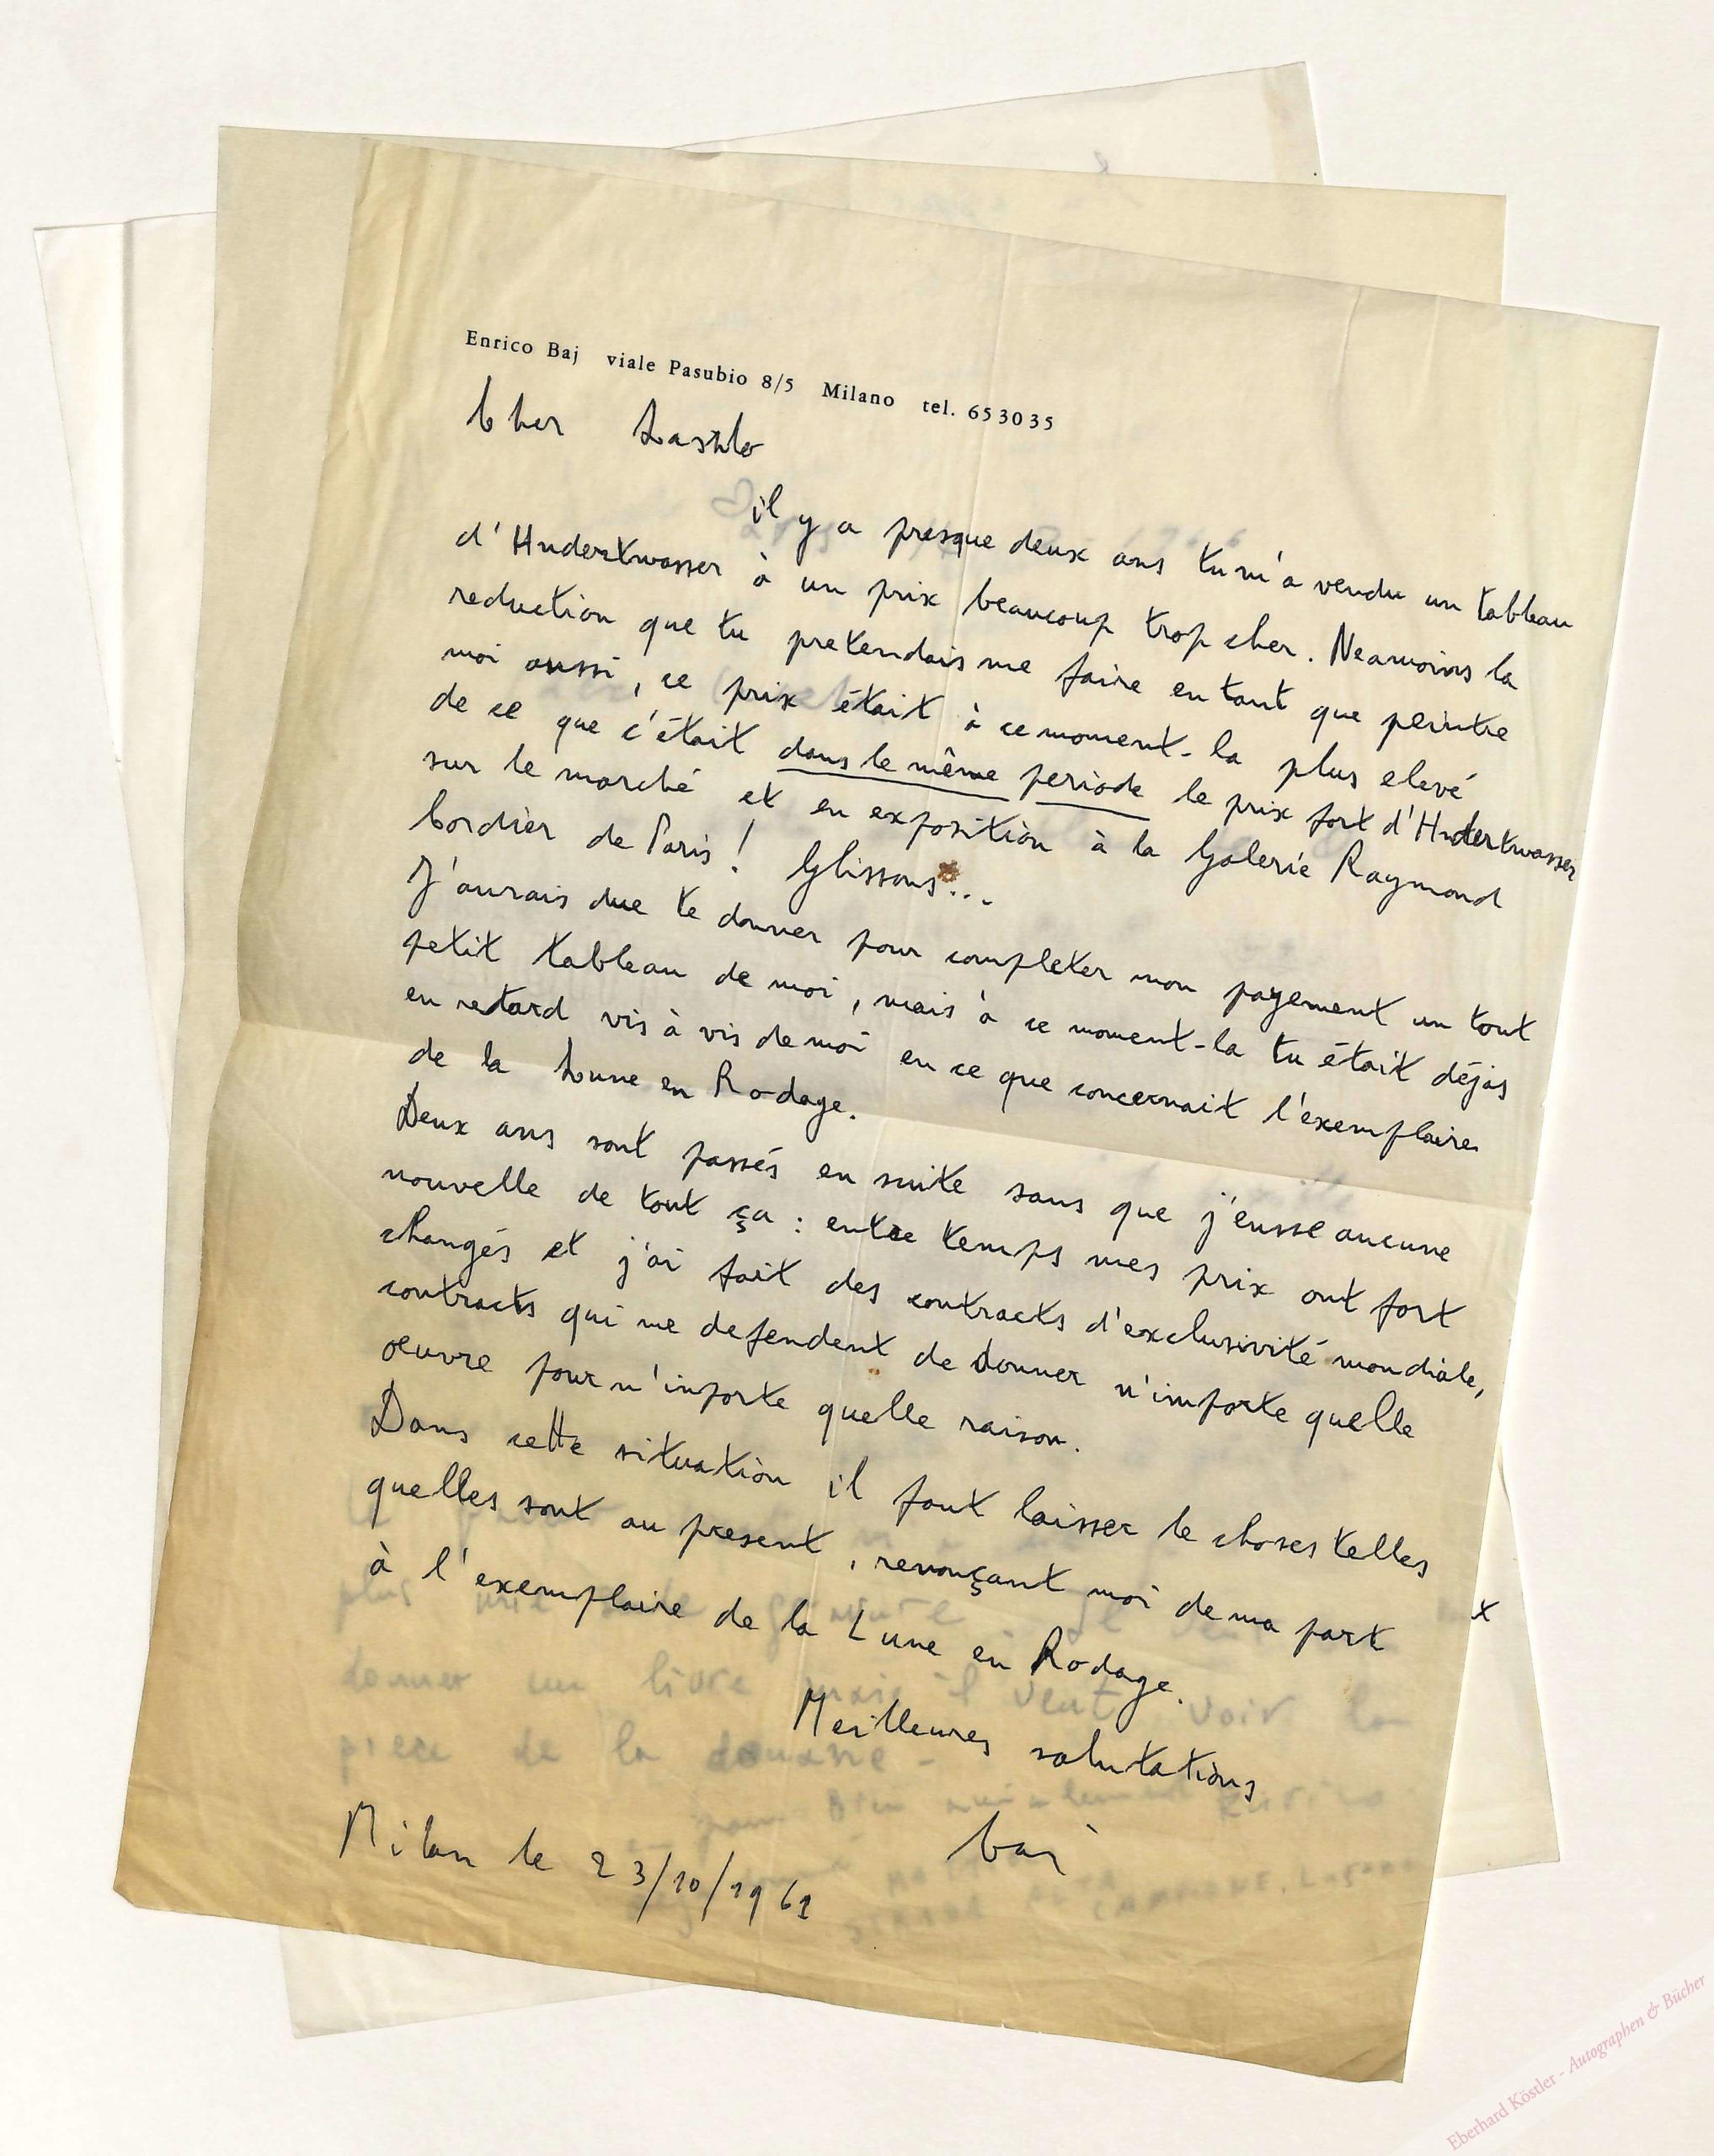 Enrico Baj viale Pasubio 8/5 Milano tel. 653035
Cher Laszlo
il y a presque deux ans tu m'a vendu un tableau
d'Hudertwasser à un prix beaucoup trop cher. Neamoins la
reduction que tu pretendais me faire en tant que peintre
moi aussi, ce prix était à ce moment-la plus elevé
de ce que c'était dans le même periode le prix fort d'Hudertwasser
sur le marché et en exposition à la Galerie Raymond
Cordier de Paris! Glissons...
J'aurais due te donner pour completer mon payement un tout
petit tableau de moi, mais à ce moment-la tu était déjas
en retard vis à vis de moi en ce que concernait l'exemplaire
de la Lune en Rodage.
Deux ans sont passés en suite sans que j'eusse aucune
nouvelle de tout ça: entre temps mes prix ont fort
changés et j'ai fait des contracts d'exclusivité mondiale,
contracts qui me defendent de donner n'importe quelle
oeuvre pour n'importe quelle raison.
Dans cette situation il faut laisser le choses telles
quelles sont au present, renonçant moi de ma part
à l'exemplaire de la Lune en Rodage.
Meilleures salutations
baj
Milan le 23/10/1961
x
plus
donner un livre mais il veut voir la
piece de la douane -
Eberhard Köstler - Autographen & Bücher